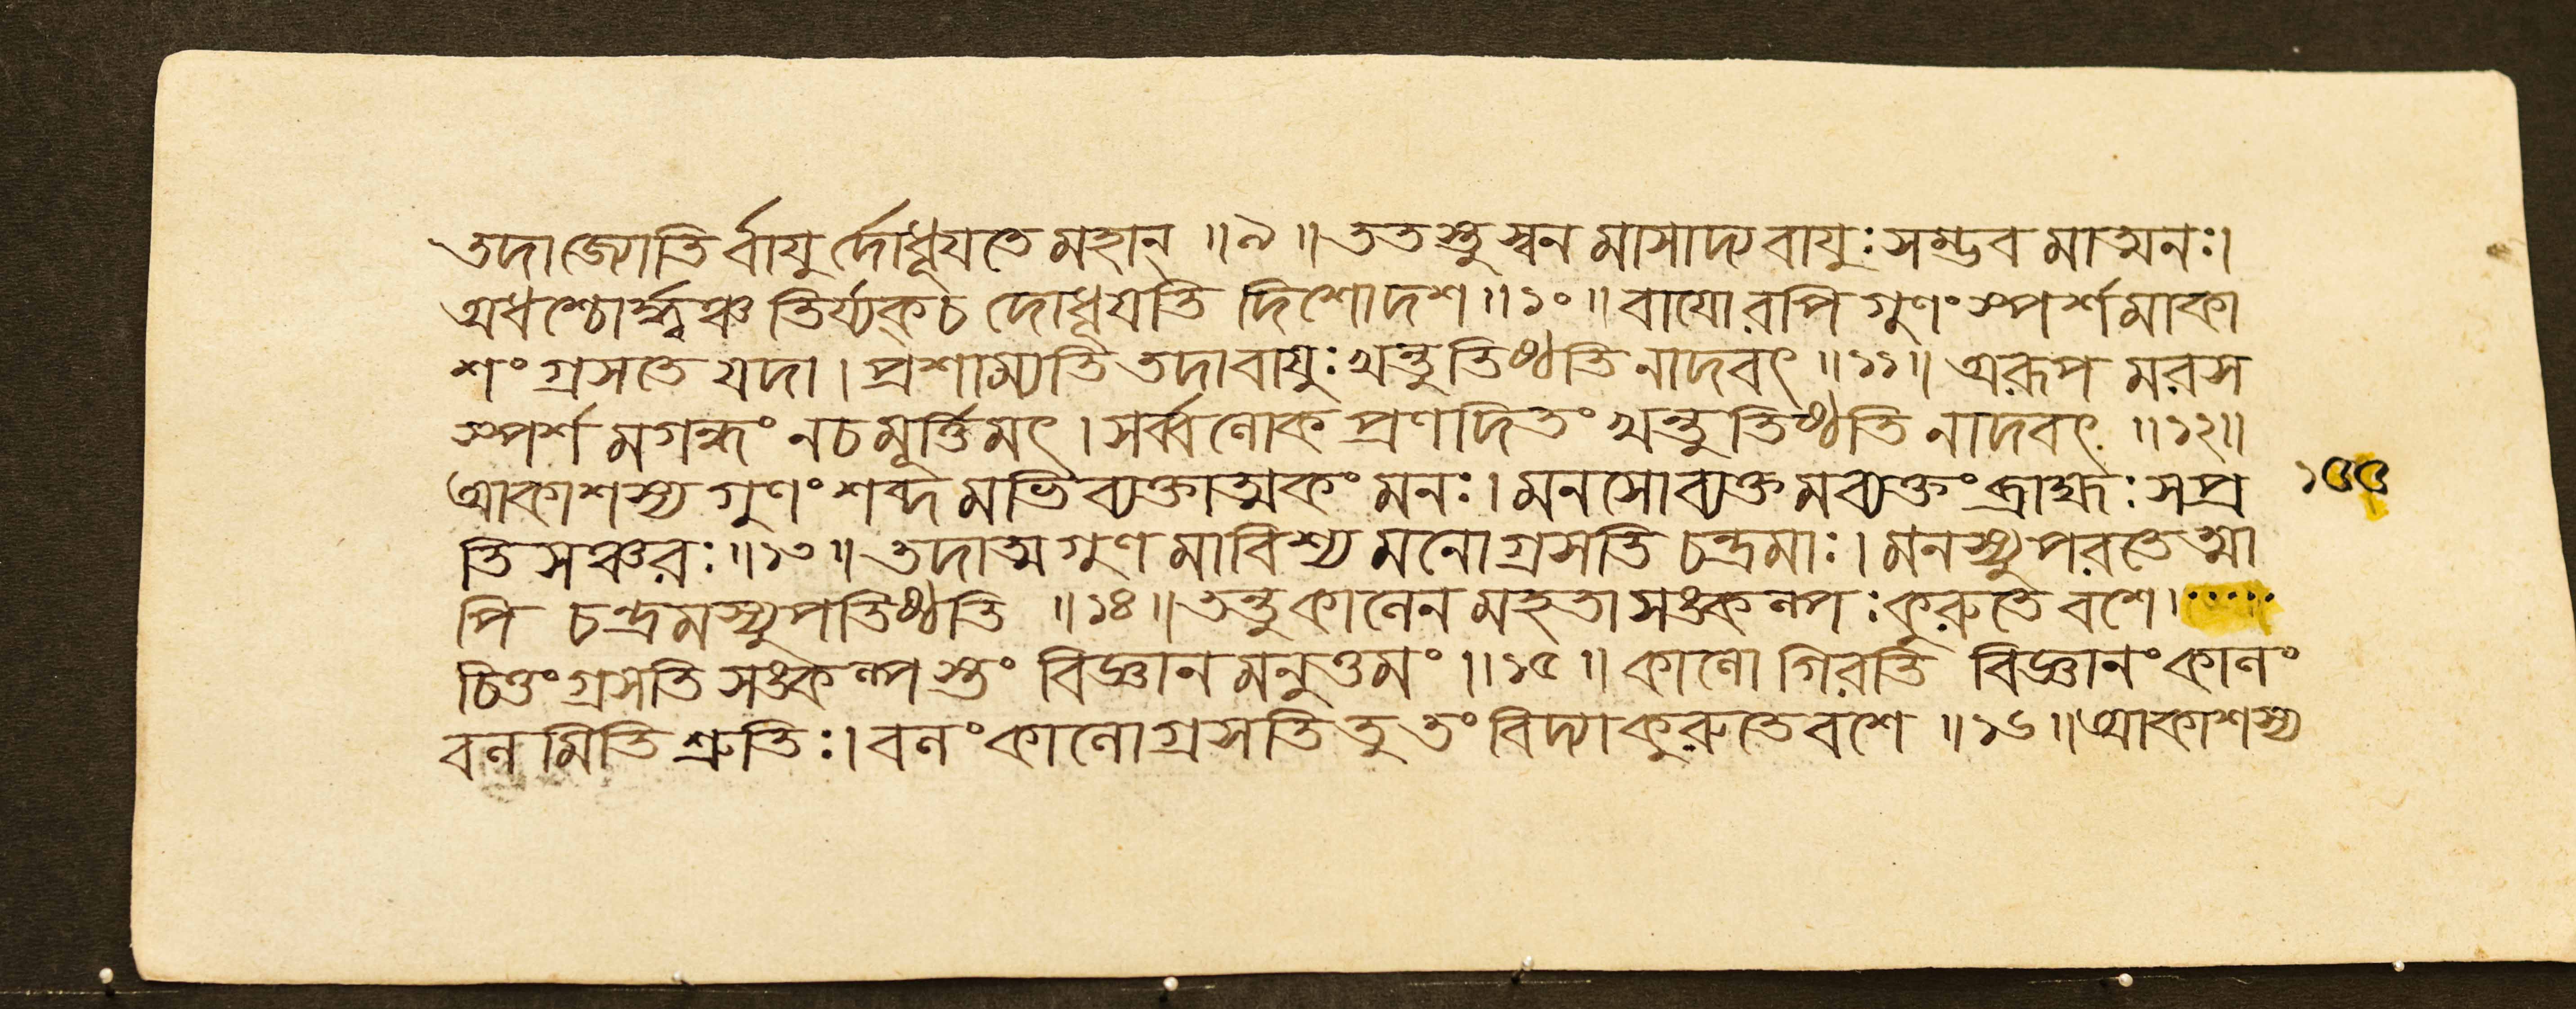 তদাজ্যোতির্বায়ুর্দোধূযতেমহান্ ॥৯॥ ততস্তুস্বনমাসাদ্যবায়ুঃসম্ভবমাত্মনঃ।
অধশ্চোর্দ্ধ্বঞ্চতির্য্যক্চ দোধূযতি দিশোদশ॥১০॥ বাযোরপিগুণংস্পর্শমাকা
শংগ্রসতেযদা।প্রশাম্যতিতদাবাযুঃখন্তুতিষ্ঠতিনাদবৎ॥১১॥ অরূপমরস
স্পর্শমগন্ধংনচমূর্ত্তিমৎ।সর্ব্বলোকপ্রণদিতংখন্তুতিষ্ঠতিনাদবৎ॥১২॥
আকাশস্যগুণংশব্দমভিব্যক্তাত্মকংমনঃ।মনসোব্যক্তমব্যক্তংব্রাহ্মঃসপ্র ১৫৫
তিসঞ্চরঃ॥১৩॥তদাত্মগুণমাবিশ্যমনোগ্রসতিচন্দ্রমাঃ।মনস্যুপরতেত্মা
পি চন্দ্রমস্যুপতিষ্ঠতি ॥১৪॥তন্তুকালেনমহতাসঙ্কল্পঃকুরুতেবশে।.....
চিত্তংগ্রসতিসঙ্কল্পস্তং বিজ্ঞানমনুত্তমং॥১৫॥ কালোগিরতি বিজ্ঞানংকালং
বলমিতিশ্রুতিঃ।বলংকালোগ্রসতিতুতংবিদ্যাকুরুতেবশে॥১৬॥আকাশস্য